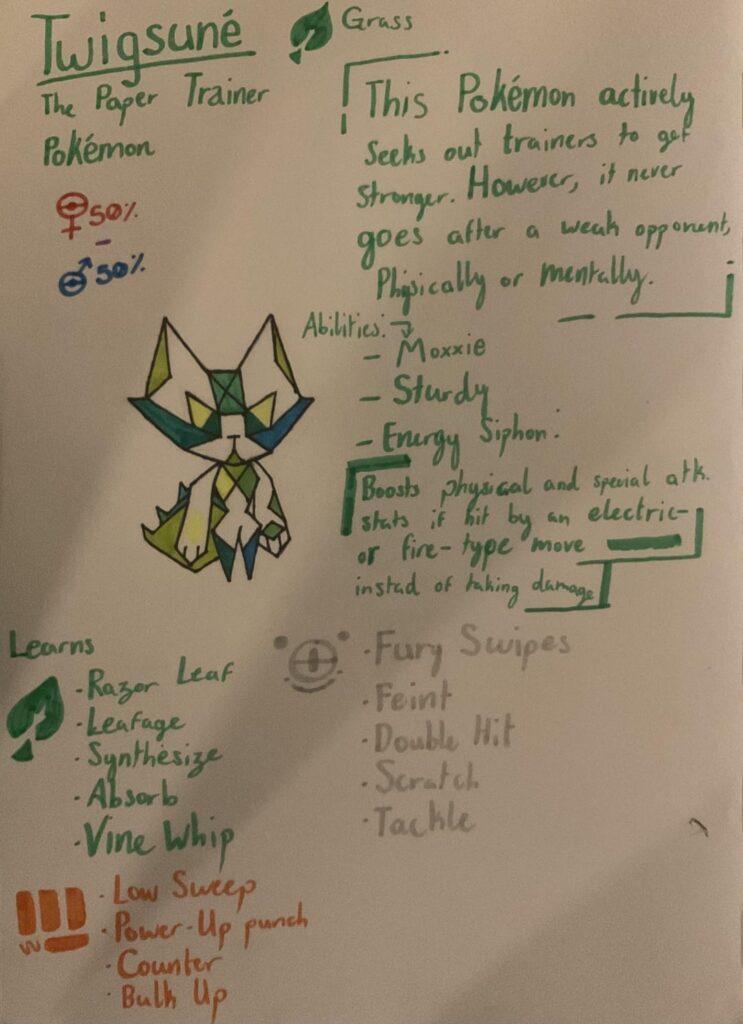 Twigsuné
The Paper Trainer
Pokémon
50%
50%
Grass
This Pokémon actively
seeks out trainers to get
stronger. However, it never
goes after a weak opponent,
Physically or mentally.
Abilities:
- Moxxie
- Sturdy
- Energy Siphon:
Boosts physical and special atk.
stats if hit by an electric-
or fire-type move
instad of taking damage
Learns
·Razor Leaf
·Leafage
·Synthesize
·Absorb
·Vine Whip
·Fury Swipes
·Feint
·Double Hit
·Scratch
·Tackle
·Low Sweep
·Power-Up punch
·Counter
·Bulk Up